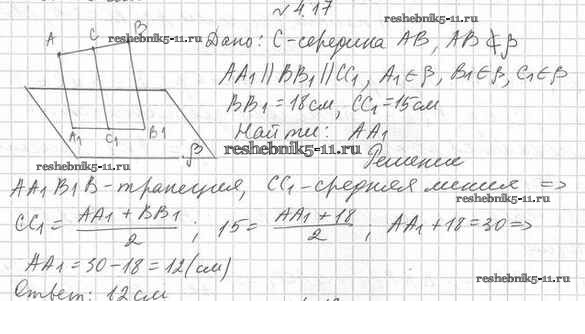 № 4.17
reshebnik5-11.ru
A C B reshebnik5-11.ru
Дано: C-середина AB, AB ⊄ β
AA1 || BB1 || CC1, A1 ∈ β, B1 ∈ β, C1 ∈ β
BB1 = 18 см, CC1 = 15 см
A1 C1 B1
Найти: AA1
β reshebnik5-11.ru
reshebnik5-11.ru
Решение
AA1B1B - трапеция, CC1 - средняя линия =>
CC1 = (AA1 + BB1)/2 ; 15 = (AA1 + 18)/2 , AA1 + 18 = 30 =>
AA1 = 30 - 18 = 12 (см)
reshebnik5-11.ru
Ответ: 12 см